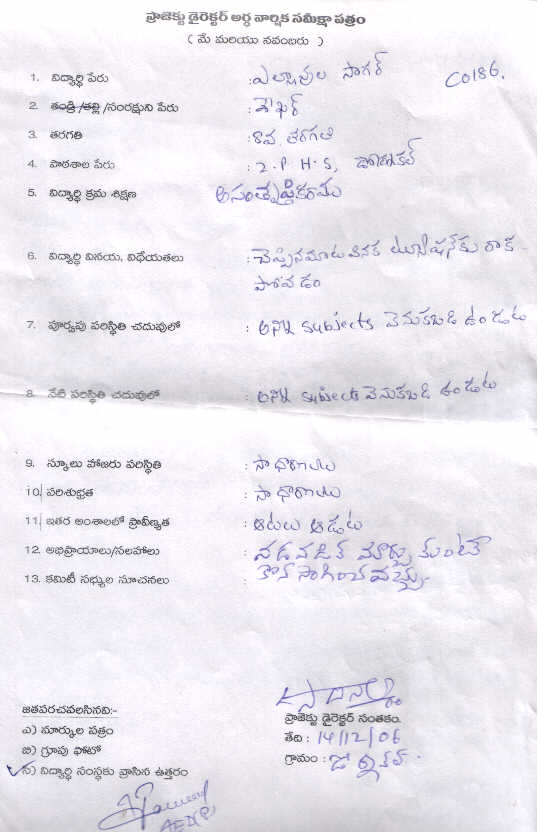 ప్రాజెక్టు డైరెక్టర్ అర్ధ వార్షిక సమీక్షా పత్రం
( మే మరియు నవంబరు )
1. విద్యార్థి పేరు : ఎల్లావుల సాగర్ C0186.
2. తండ్రి/తల్లి/సంరక్షుని పేరు : శేఖర్
3. తరగతి : 8వ తరగతి
4. పాఠశాల పేరు : Z. P. H. S,
5. విద్యార్థి క్రమ శిక్షణ అసంతృప్తికరము
6. విద్యార్థి వినయ, విధేయతలు : చెప్పినమాట వినక ట్యూషన్‌కు రాక
పోవడం
7. పూర్వపు పరిస్థితి చదువులో : అన్ని subjects వెనుకబడి ఉండుట
8. నేటి పరిస్థితి చదువులో : అన్ని subjects వెనుకబడి ఉండుట
9. స్కూలు హాజరు పరిస్థితి : సాధారణము
10. పరిశుభ్రత : సాధారణము
11. ఇతర అంశాలలో ప్రావీణ్యత : ఆటలు ఆడుట
12. అభిప్రాయాలు/సలహాలు : నడవడిక మార్చుకుంటే
13. కమిటీ సభ్యుల సూచనలు : కొనసాగించవచ్చు.
జతపరచవలసినవి:-
ప్రాజెక్టు డైరెక్టర్ సంతకం.
ఎ) మార్కుల పత్రం
తేది : 14/12/06
బి) గ్రూపు ఫోటో
గ్రామం :
సి) విద్యార్థి సంస్థకు వ్రాసిన ఉత్తరం